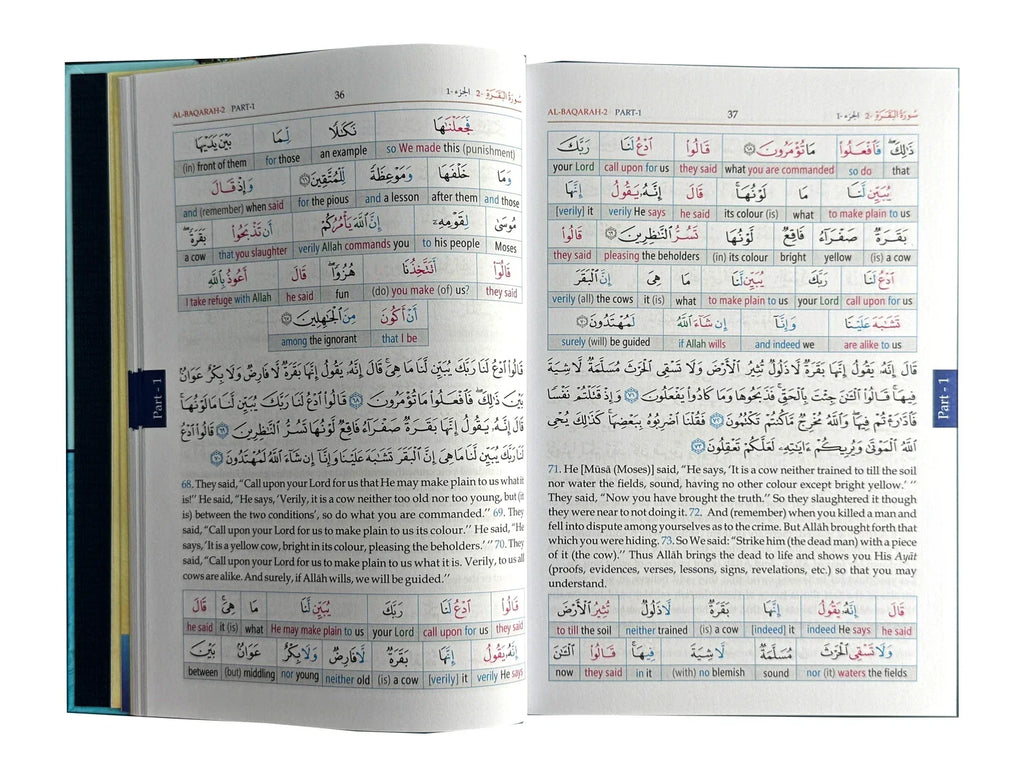 AL-BAQARAH-2 PART-1 36 الجزء -1 سُورَةُ الْبَقَرَةِ -2
فَجَعَلْنَـٰهَا نَكَـٰلًا لِّمَا بَيْنَ يَدَيْهَا
(in) front of them for those an example so We made this (punishment)
وَمَا خَلْفَهَا وَمَوْعِظَةً لِّلْمُتَّقِينَ ﴿٦٦﴾ وَإِذْ قَالَ
and (remember) when said for the pious and a lesson after them and those
مُوسَىٰ لِقَوْمِهِۦٓ إِنَّ ٱللَّهَ يَأْمُرُكُمْ أَن تَذْبَحُوا۟ بَقَرَةً ۖ
a cow that you slaughter verily Allah commands you to his people Moses
قَالُوٓا۟ أَتَتَّخِذُنَا هُزُوًا ۖ قَالَ أَعُوذُ بِٱللَّهِ
I take refuge with Allah he said fun (do) you make (of) us? they said
أَنْ أَكُونَ مِنَ ٱلْجَـٰهِلِينَ ﴿٦٧﴾
among the ignorant that I be
قَالُوا۟ ٱدْعُ لَنَا رَبَّكَ يُبَيِّن لَّنَا مَا هِىَ ۚ قَالَ إِنَّهُۥ يَقُولُ إِنَّهَا بَقَرَةٌ لَّا فَارِضٌ وَلَا بِكْرٌ عَوَانٌۢ
بَيْنَ ذَٰلِكَ ۖ فَٱفْعَلُوا۟ مَا تُؤْمَرُونَ ﴿٦٨﴾ قَالُوا۟ ٱدْعُ لَنَا رَبَّكَ يُبَيِّن لَّنَا مَا لَوْنُهَا ۚ
قَالَ إِنَّهُۥ يَقُولُ إِنَّهَا بَقَرَةٌ صَفْرَآءُ فَاقِعٌ لَّوْنُهَا تَسُرُّ ٱلنَّـٰظِرِينَ ﴿٦٩﴾ قَالُوا۟ ٱدْعُ
لَنَا رَبَّكَ يُبَيِّن لَّنَا مَا هِىَ إِنَّ ٱلْبَقَرَ تَشَـٰبَهَ عَلَيْنَا وَإِنَّآ إِن شَآءَ ٱللَّهُ لَمُهْتَدُونَ ﴿٧٠﴾
68. They said, “Call upon your Lord for us that He may make plain to us what it
is!” He said, “He says, ‘Verily, it is a cow neither too old nor too young, but (it
is) between the two conditions’, so do what you are commanded.” 69. They
said, “Call upon your Lord for us to make plain to us its colour.” He said, “He
says, ‘It is a yellow cow, bright in its colour, pleasing the beholders.’ ” 70. They
said, “Call upon your Lord for us to make plain to us what it is. Verily, to us all
cows are alike. And surely, if Allāh wills, we will be guided.”
قَالُوا۟ ٱدْعُ لَنَا رَبَّكَ يُبَيِّن لَّنَا مَا هِىَ ۚ قَالَ
he said it (is) what He may make plain to us your Lord call upon for us they said
إِنَّهُۥ يَقُولُ إِنَّهَا بَقَرَةٌ لَّا فَارِضٌ وَلَا بِكْرٌ عَوَانٌۢ بَيْنَ
between (but) middling nor young neither old (is) a cow [verily] it verily He says
Part - 1
AL-BAQARAH-2 PART-1 37 الجزء -1 سُورَةُ الْبَقَرَةِ -2
ذَٰلِكَ ۖ فَٱفْعَلُوا۟ مَا تُؤْمَرُونَ ﴿٦٨﴾ قَالُوا۟ ٱدْعُ لَنَا رَبَّكَ
your Lord call upon for us they said what you are commanded so do that
يُبَيِّن لَّنَا مَا لَوْنُهَا ۚ قَالَ إِنَّهُۥ يَقُولُ إِنَّهَا
[verily] it verily He says he said its colour (is) what to make plain to us
بَقَرَةٌ صَفْرَآءُ فَاقِعٌ لَّوْنُهَا تَسُرُّ ٱلنَّـٰظِرِينَ ﴿٦٩﴾ قَالُوا۟
they said pleasing the beholders (in) its colour bright yellow (is) a cow
ٱدْعُ لَنَا رَبَّكَ يُبَيِّن لَّنَا مَا هِىَ إِنَّ ٱلْبَقَرَ
verily (all) the cows it (is) what to make plain to us your Lord call upon for us
تَشَـٰبَهَ عَلَيْنَا وَإِنَّآ إِن شَآءَ ٱللَّهُ لَمُهْتَدُونَ ﴿٧٠﴾
surely (will) be guided if Allah wills and indeed we are alike to us
قَالَ إِنَّهُۥ يَقُولُ إِنَّهَا بَقَرَةٌ لَّا ذَلُولٌ تُثِيرُ ٱلْأَرْضَ وَلَا تَسْقِى ٱلْحَرْثَ مُسَلَّمَةٌ لَّا شِيَةَ
فِيهَا ۚ قَالُوا۟ ٱلْـَٔـٰنَ جِئْتَ بِٱلْحَقِّ ۚ فَذَبَحُوهَا وَمَا كَادُوا۟ يَفْعَلُونَ ﴿٧١﴾ وَإِذْ قَتَلْتُمْ نَفْسًا
فَٱدَّٰرَْٰٔتُمْ فِيهَا ۖ وَٱللَّهُ مُخْرِجٌ مَّا كُنتُمْ تَكْتُمُونَ ﴿٧٢﴾ فَقُلْنَا ٱضْرِبُوهُ بِبَعْضِهَا ۚ كَذَٰلِكَ يُحْىِ
ٱللَّهُ ٱلْمَوْتَىٰ وَيُرِيكُمْ ءَايَـٰتِهِۦ لَعَلَّكُمْ تَعْقِلُونَ ﴿٧٣﴾
71. He [Mūsā (Moses)] said, “He says, ‘It is a cow neither trained to till the soil
nor water the fields, sound, having no other colour except bright yellow.’ ”
They said, “Now you have brought the truth.” So they slaughtered it though
they were near to not doing it. 72. And (remember) when you killed a man and
fell into dispute among yourselves as to the crime. But Allāh brought forth that
which you were hiding. 73. So We said: “Strike him (the dead man) with a piece
of it (the cow).” Thus Allāh brings the dead to life and shows you His Ayāt
(proofs, evidences, verses, lessons, signs, revelations, etc.) so that you may
understand.
قَالَ إِنَّهُۥ يَقُولُ إِنَّهَا بَقَرَةٌ لَّا ذَلُولٌ تُثِيرُ ٱلْأَرْضَ
to till the soil neither trained (is) a cow [indeed] it indeed He says he said
وَلَا تَسْقِى ٱلْحَرْثَ مُسَلَّمَةٌ لَّا شِيَةَ فِيهَا ۚ قَالُوا۟ ٱلْـَٔـٰنَ
now they said in it (with) no blemish sound nor (it) waters the fields
Part - 1